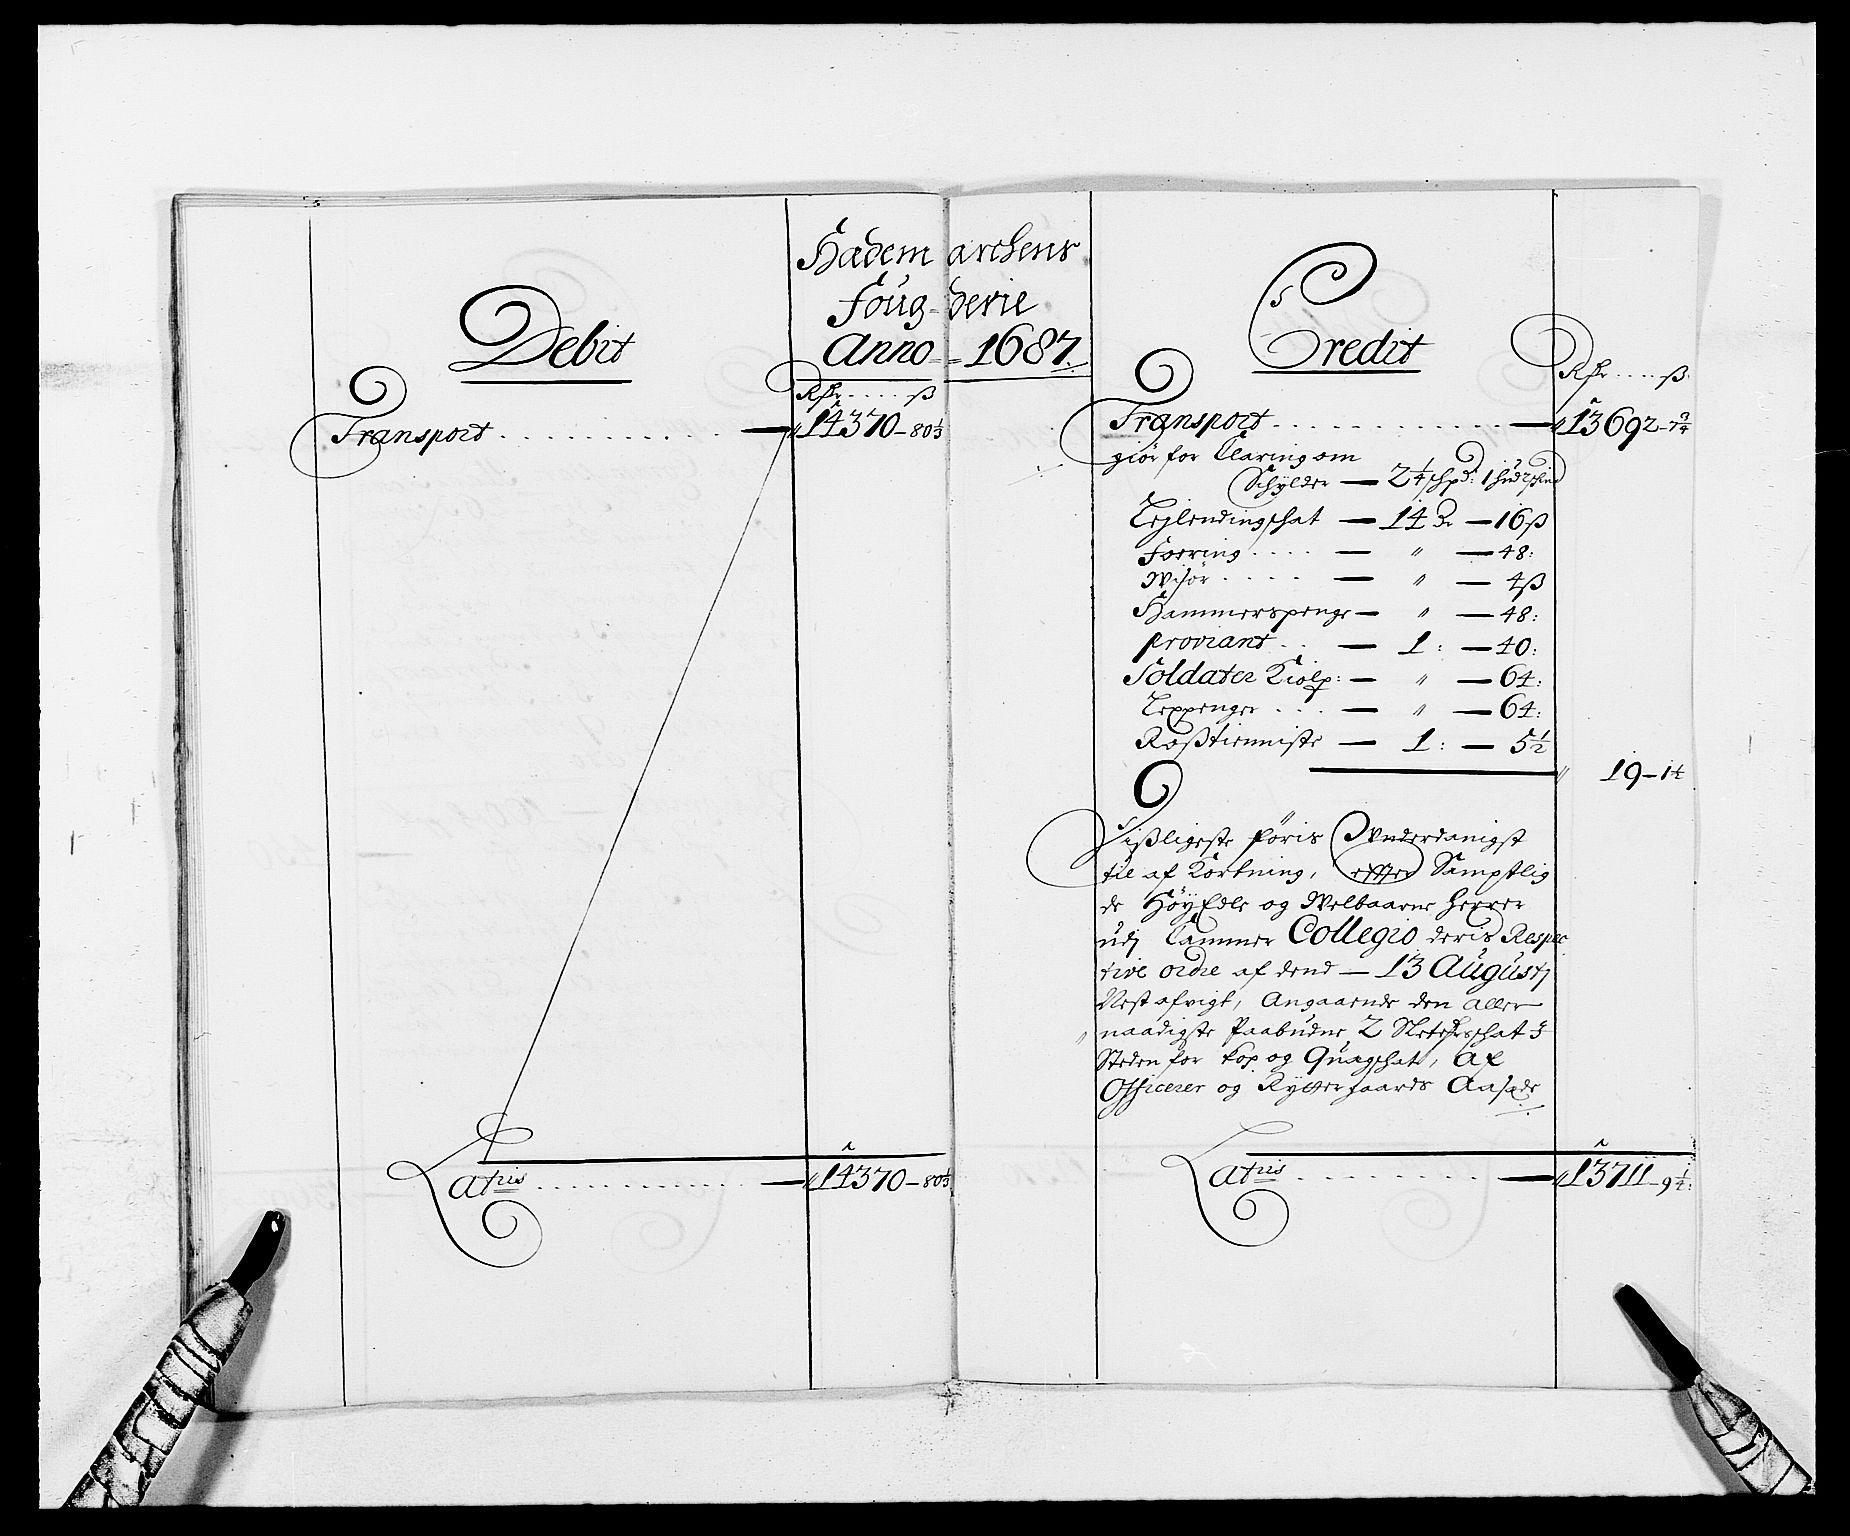 Hademarchens
Foug-derie
Anno 1687.
Debit
Rdr ß
Transport 14370 - 80⅓
Latris 14370 - 80⅓
Credit
Rdr ß
Transport 13692 - 7¾
giör for Claring om
Schylder 2¼ schpd: 1 hudschind
Lejlendingschat 14 Dr 16ß
Foering " 48:
Wisör " 4ß
Hammerspenge " 48:
proviant 1: 40:
Soldater Kiolp: " 64:
Leppenger " 64:
Roßtienniste 1: 5½
19 - 1½
Lißligeste føris Underdanigst
til af Kortning, effter Samptlig
de HöyEdle og Welbaarne Herrer
udj Cammer Collegio deris Respec
tive ordre af dend 13 Augustj
Nest afvigt, Angaaende den aller
naadigste Paabudne 2 schat i
Steden for kop og Quægschat, af
Officerer og Rytter gaards Aasæde
Latris 13711 - 9¼: